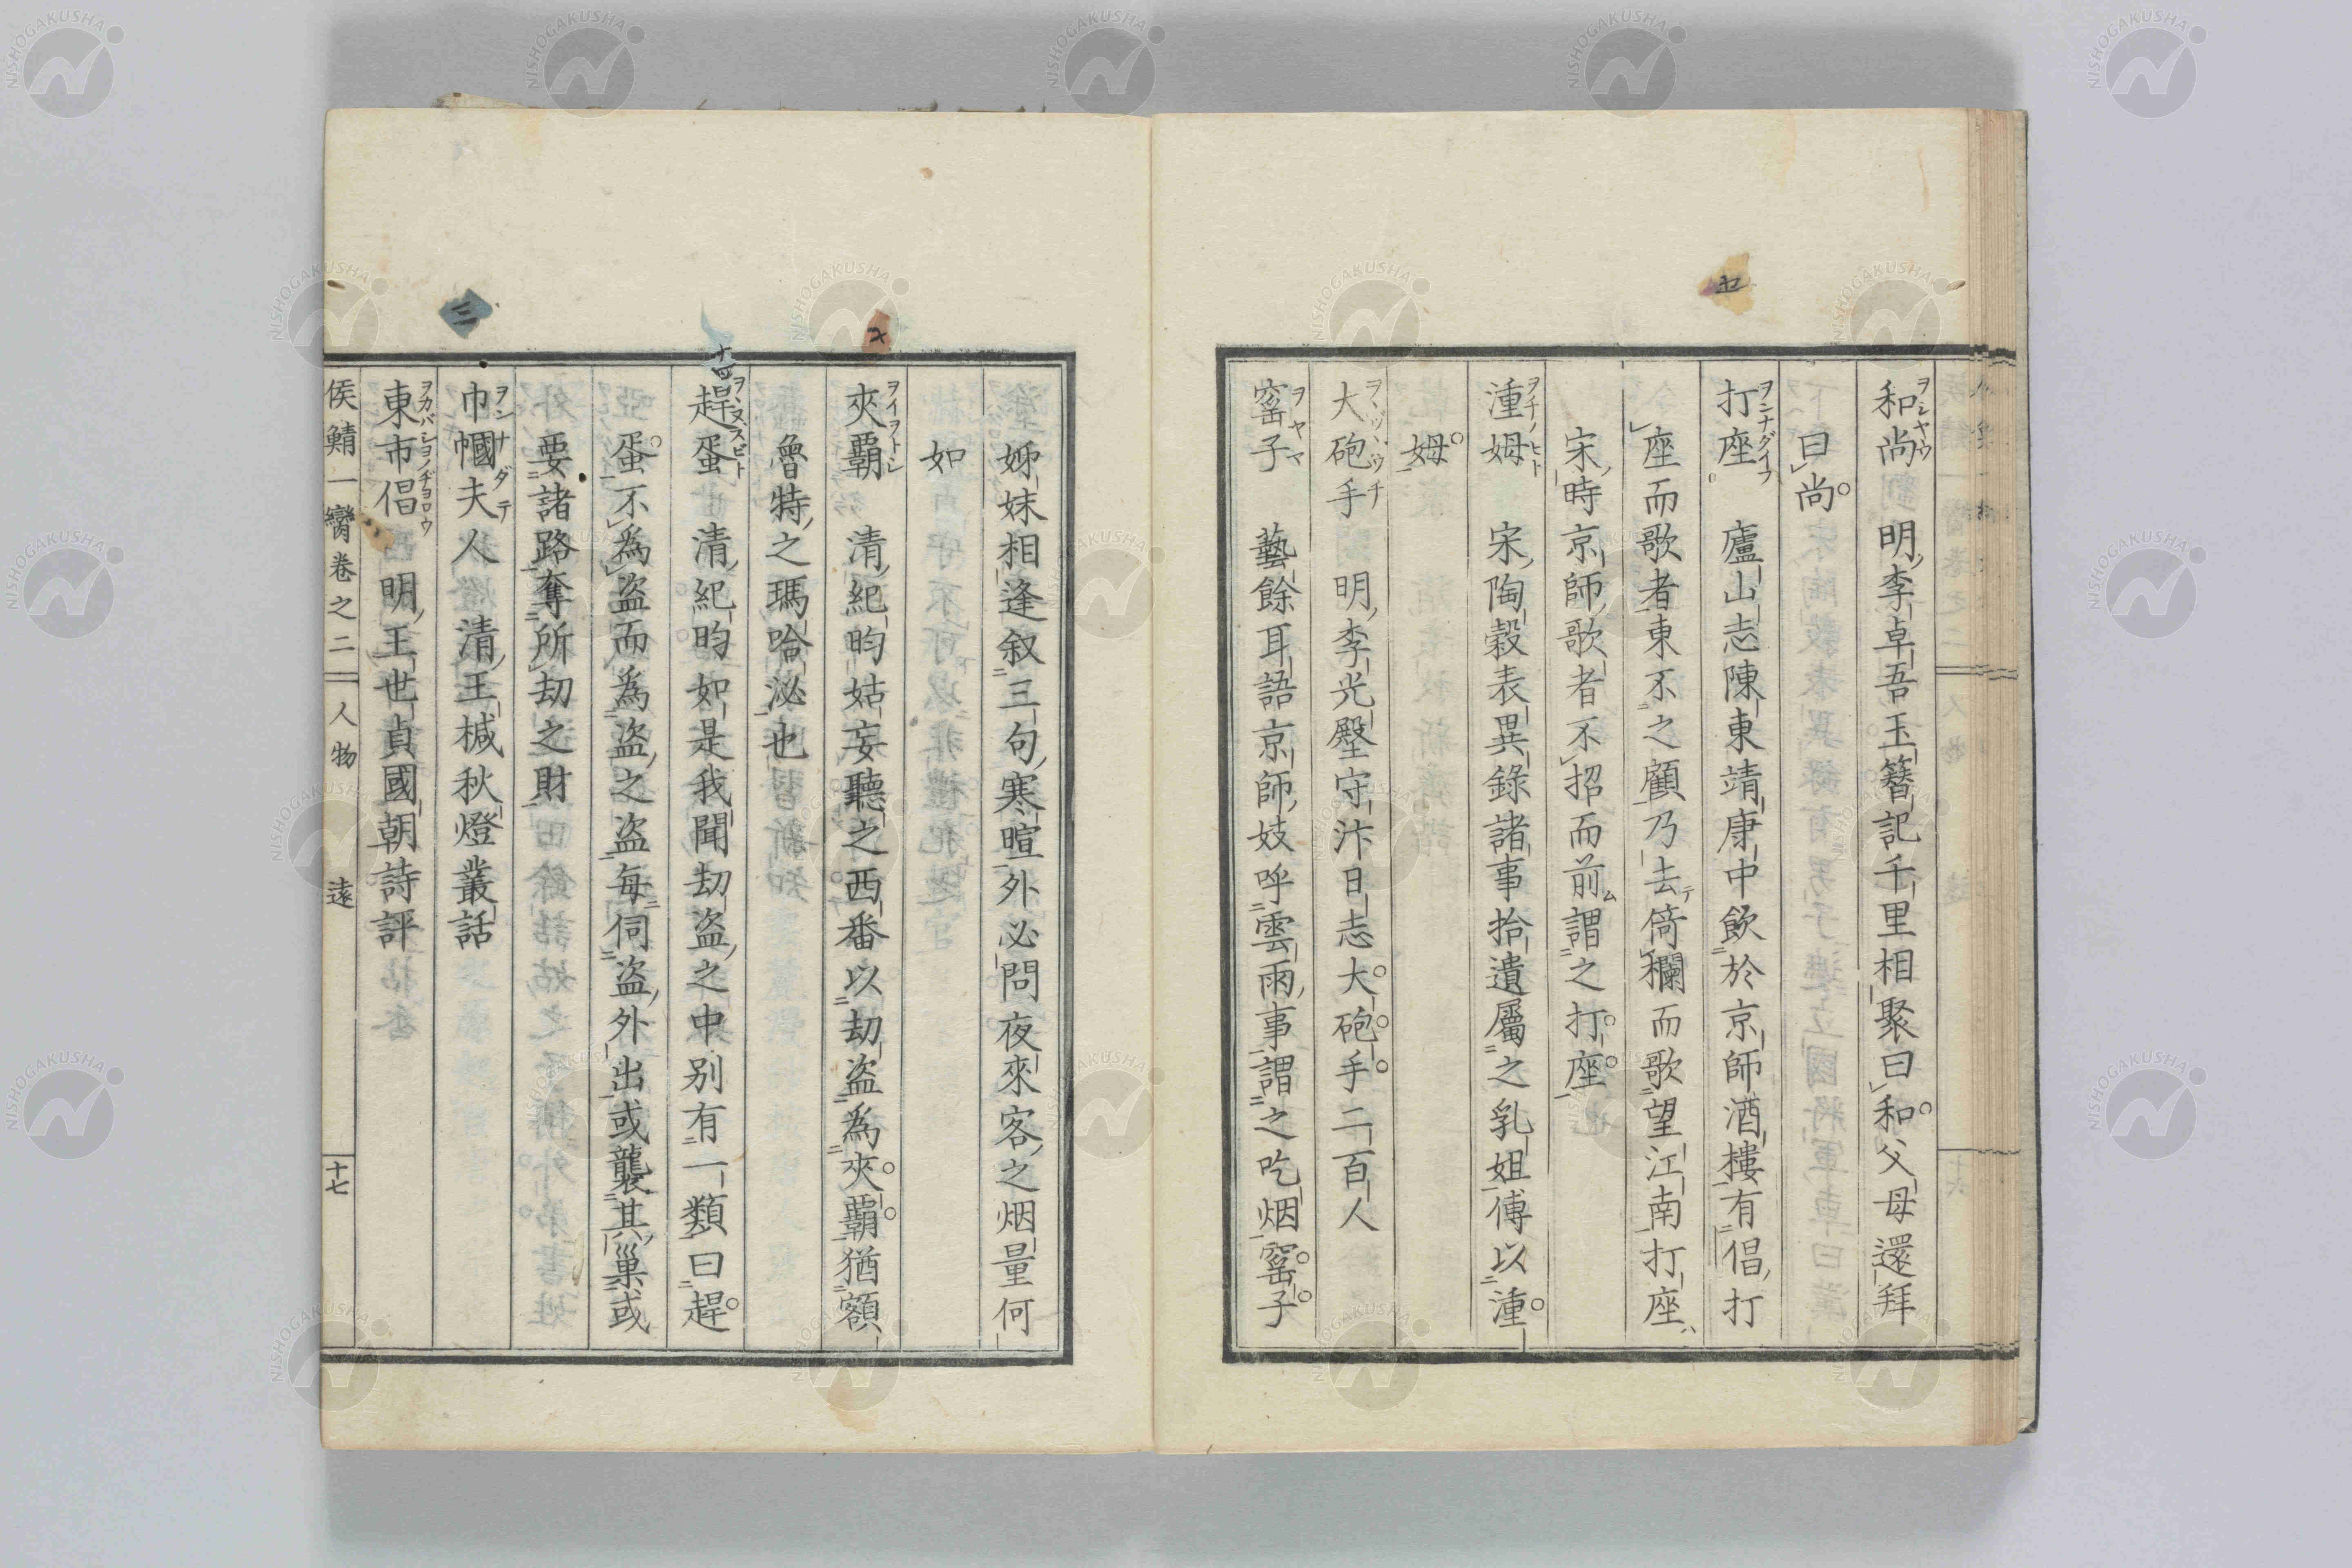 和尚 明李卓吾玉簪記千里相聚曰和父母還拜
曰尚
打座 廬山志陳東靖康中飲於京師酒樓有倡打
座而歌者東不之顧乃去倚欄而歌望江南打座
宋時京師歌者不招而前謂之打座
湩姆 宋陶穀表異錄諸事拾遺屬之乳姐傅以湩
姆
大砲手 明李光壂守汴日志大砲手二百人
窰子 藝餘耳語京師妓呼雲雨事謂之吃烟窰子
姊妹相逢叙三句寒暄外必問夜來客之烟量何
如
夾覇 清紀昀姑妄聽之西番以劫盗為夾覇猶額
魯特之瑪哈沁也
趕蛋 清紀昀如是我聞劫盗之中别有一類曰趕
蛋不為盗而為盗之盗每伺盗外出或襲其巢或
要諸路奪所劫之財
巾幗夫人 清王椷秋燈叢話
東市倡 明王世貞國朝詩評
侯鯖一臠卷之二 人物 遠 十七
ヲシヤウ
ヲニナダイフ
ヲチノヒト
ヲヤマ
ヲイヲトシ
ヲンナダテ
ヲカバシヨノヂヨロウ
三
十四
NISHOGAKUSHA